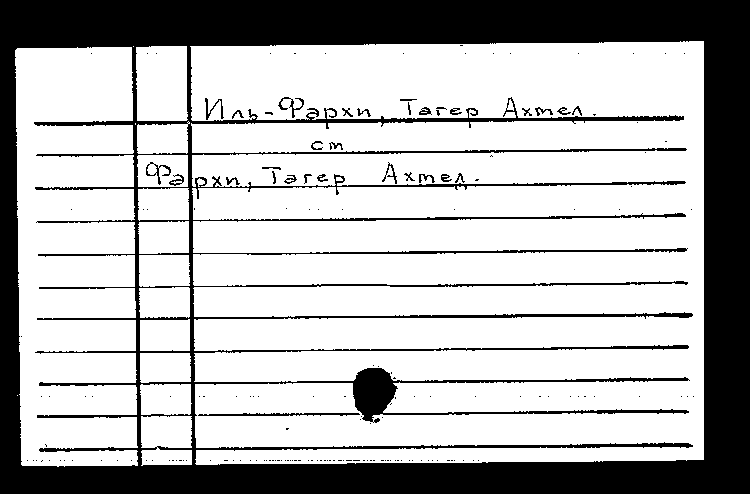 Иль-Фархи, Тагер Ахмед.
см
Фархи, Тагер Ахмед.